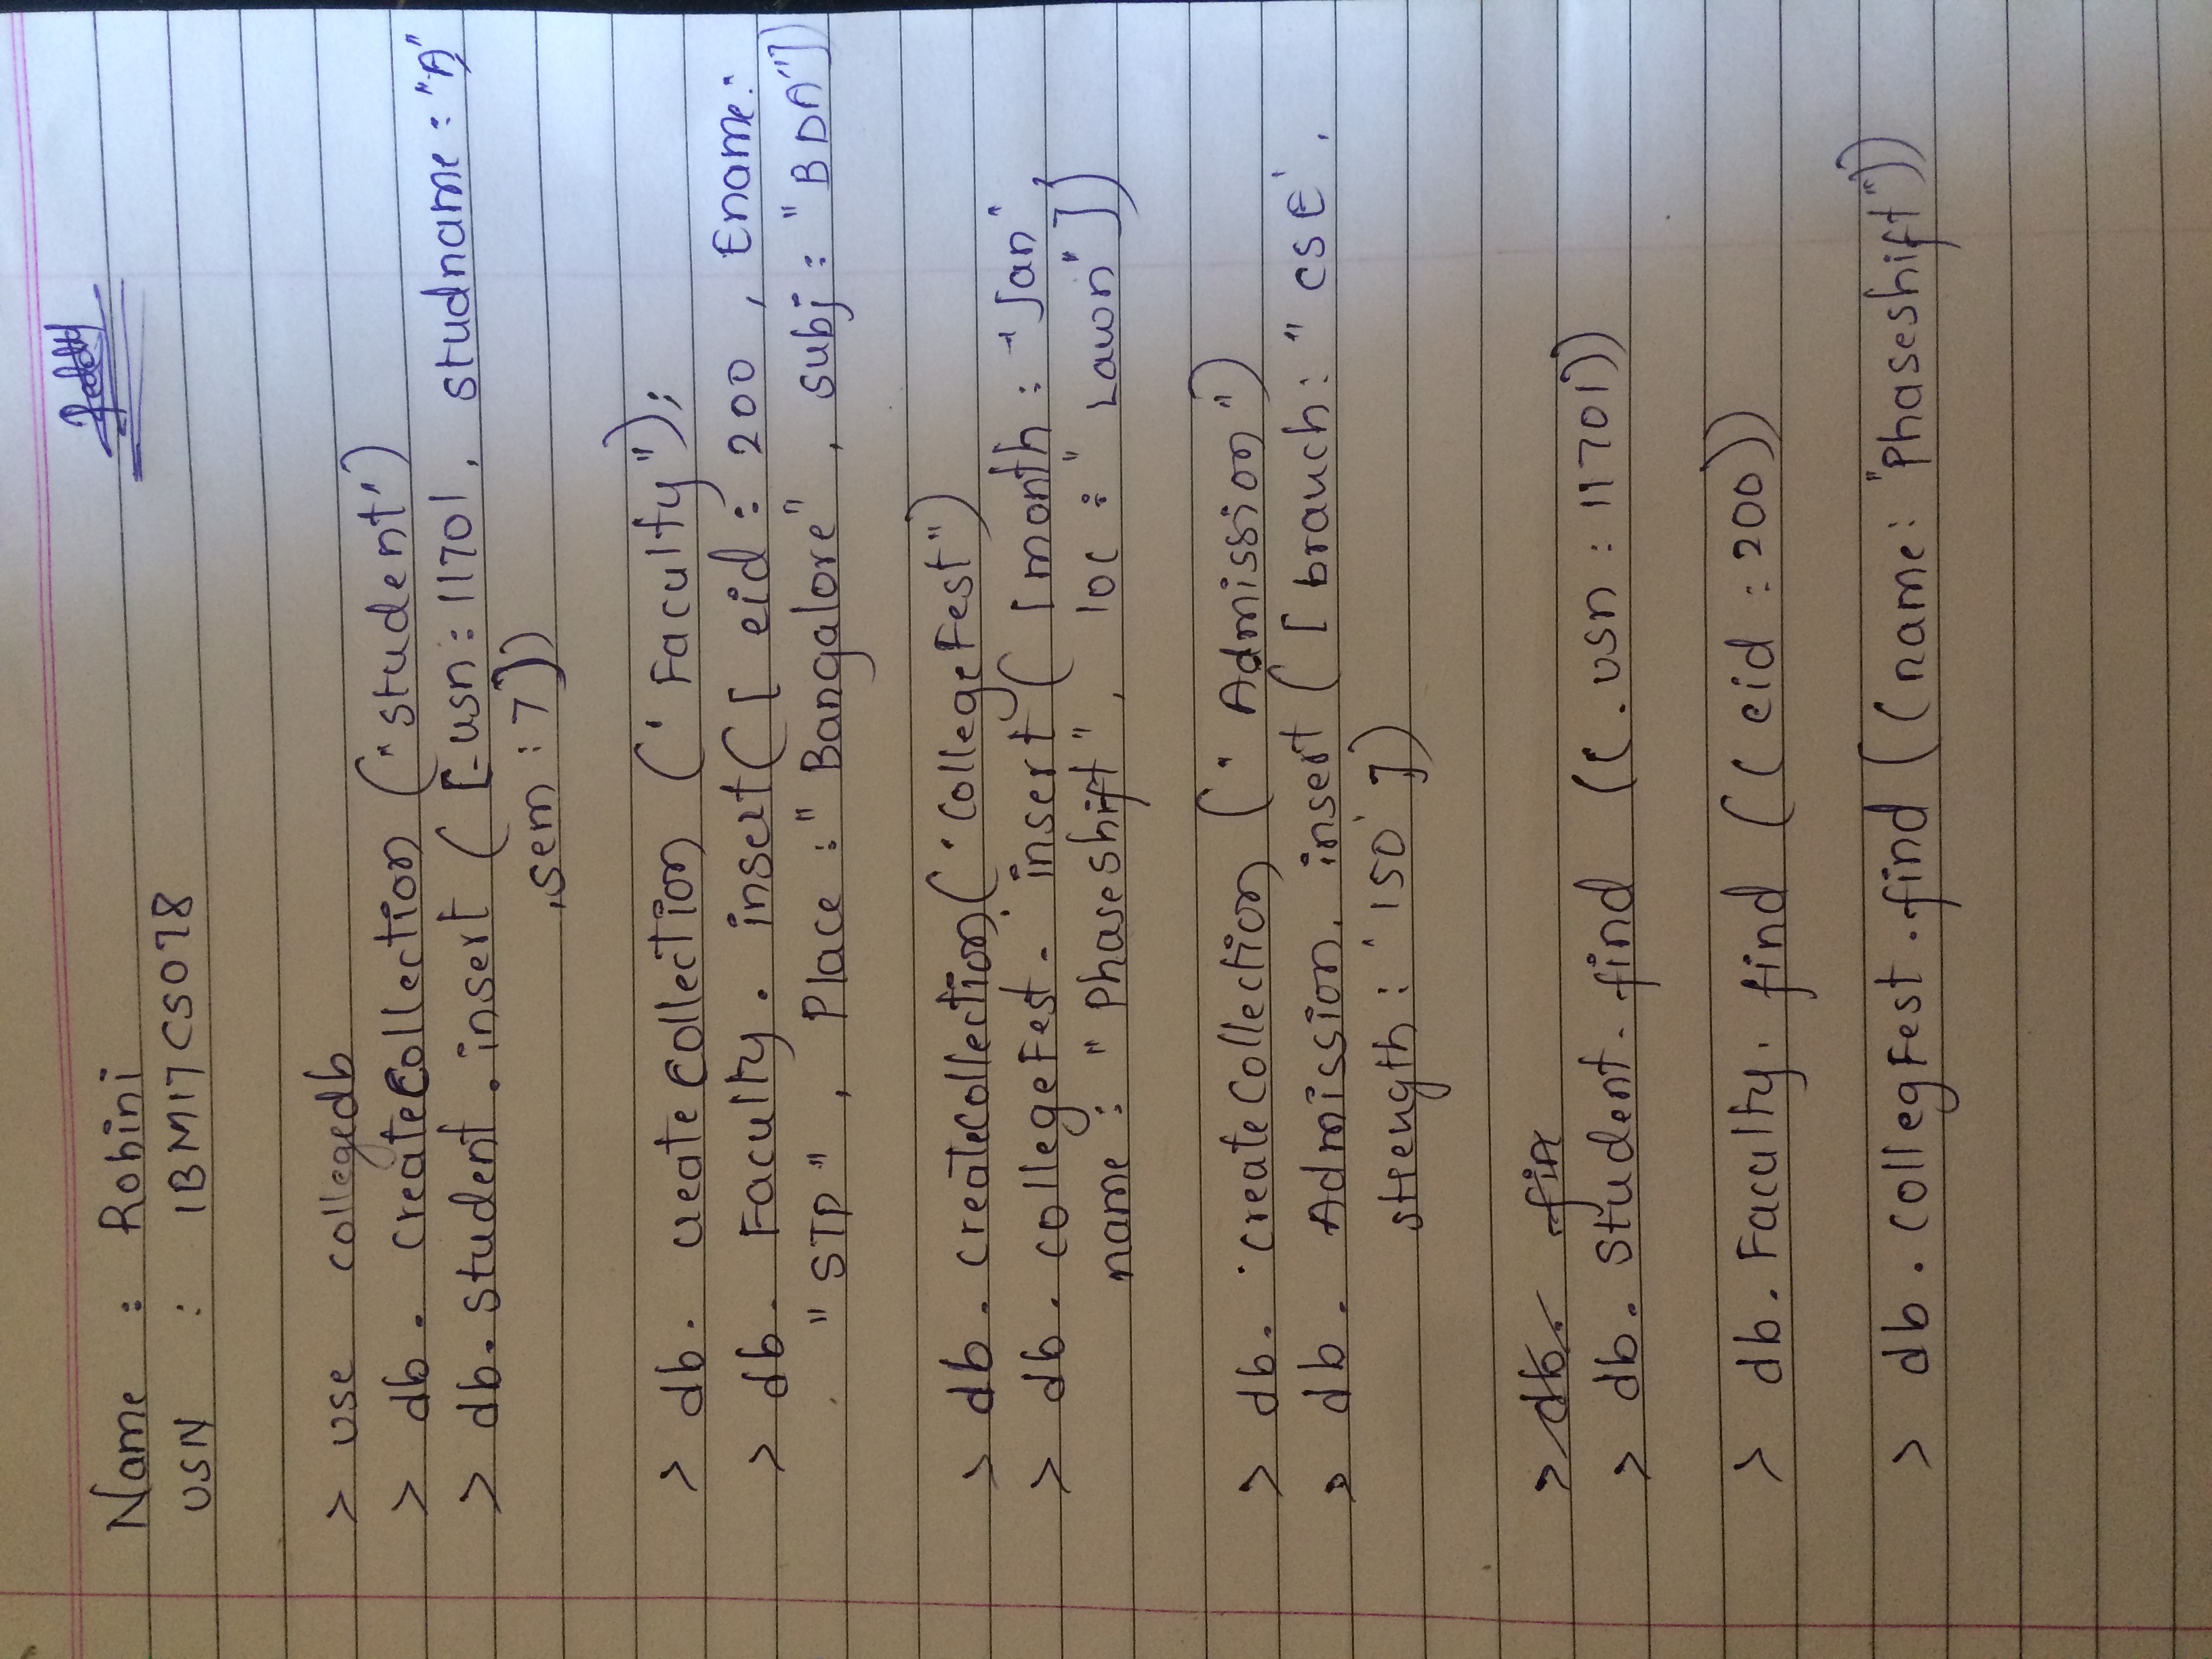 Reddy
Name : Rohini
USN : 1BM17CS078
> use collegedb
> db. createCollection ("student")
> db. student . insert ( [ usn : 11701, studname : "A"
, sem : 7 ])
> db. createCollection (' Faculty");
> db. Faculty . insert( [ eid : 200 , Ename :
"STP" , Place : "Bangalore" , subj : "BDA"])
> db . createCollection( 'CollegeFest")
> db . collegeFest . insert ( [ month : "Jan",
name : "Phaseshift" , loc : "Lawn" ])
> db. createCollection (" Admission")
> db. Admission. insert ( [ branch: "CSE',
strength : '150' ])
> db. fin
> db. Student. find ((. usn : 11701))
> db. Faculty. find ( ( eid : 200))
> db . CollegFest . find ( (name: "Phaseshift"))